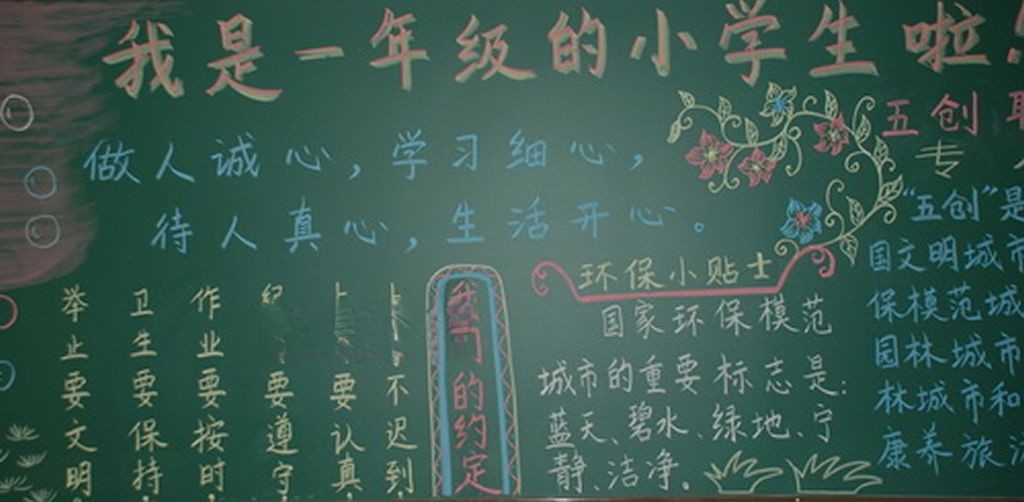 我是一年级的小学生啦!
做人诚心,学习细心,
待人真心,生活开心。
我们的约定
不迟到,
要认真,
要遵守
作业要按时,
卫生要保持,
举止要文明,
环保小贴士
国家环保模范
城市的重要标志是:
蓝天、碧水、绿地、宁
静、洁净。
五创
专
“五创”是
国文明城市
保模范城
园林城市
林城市和
康养旅